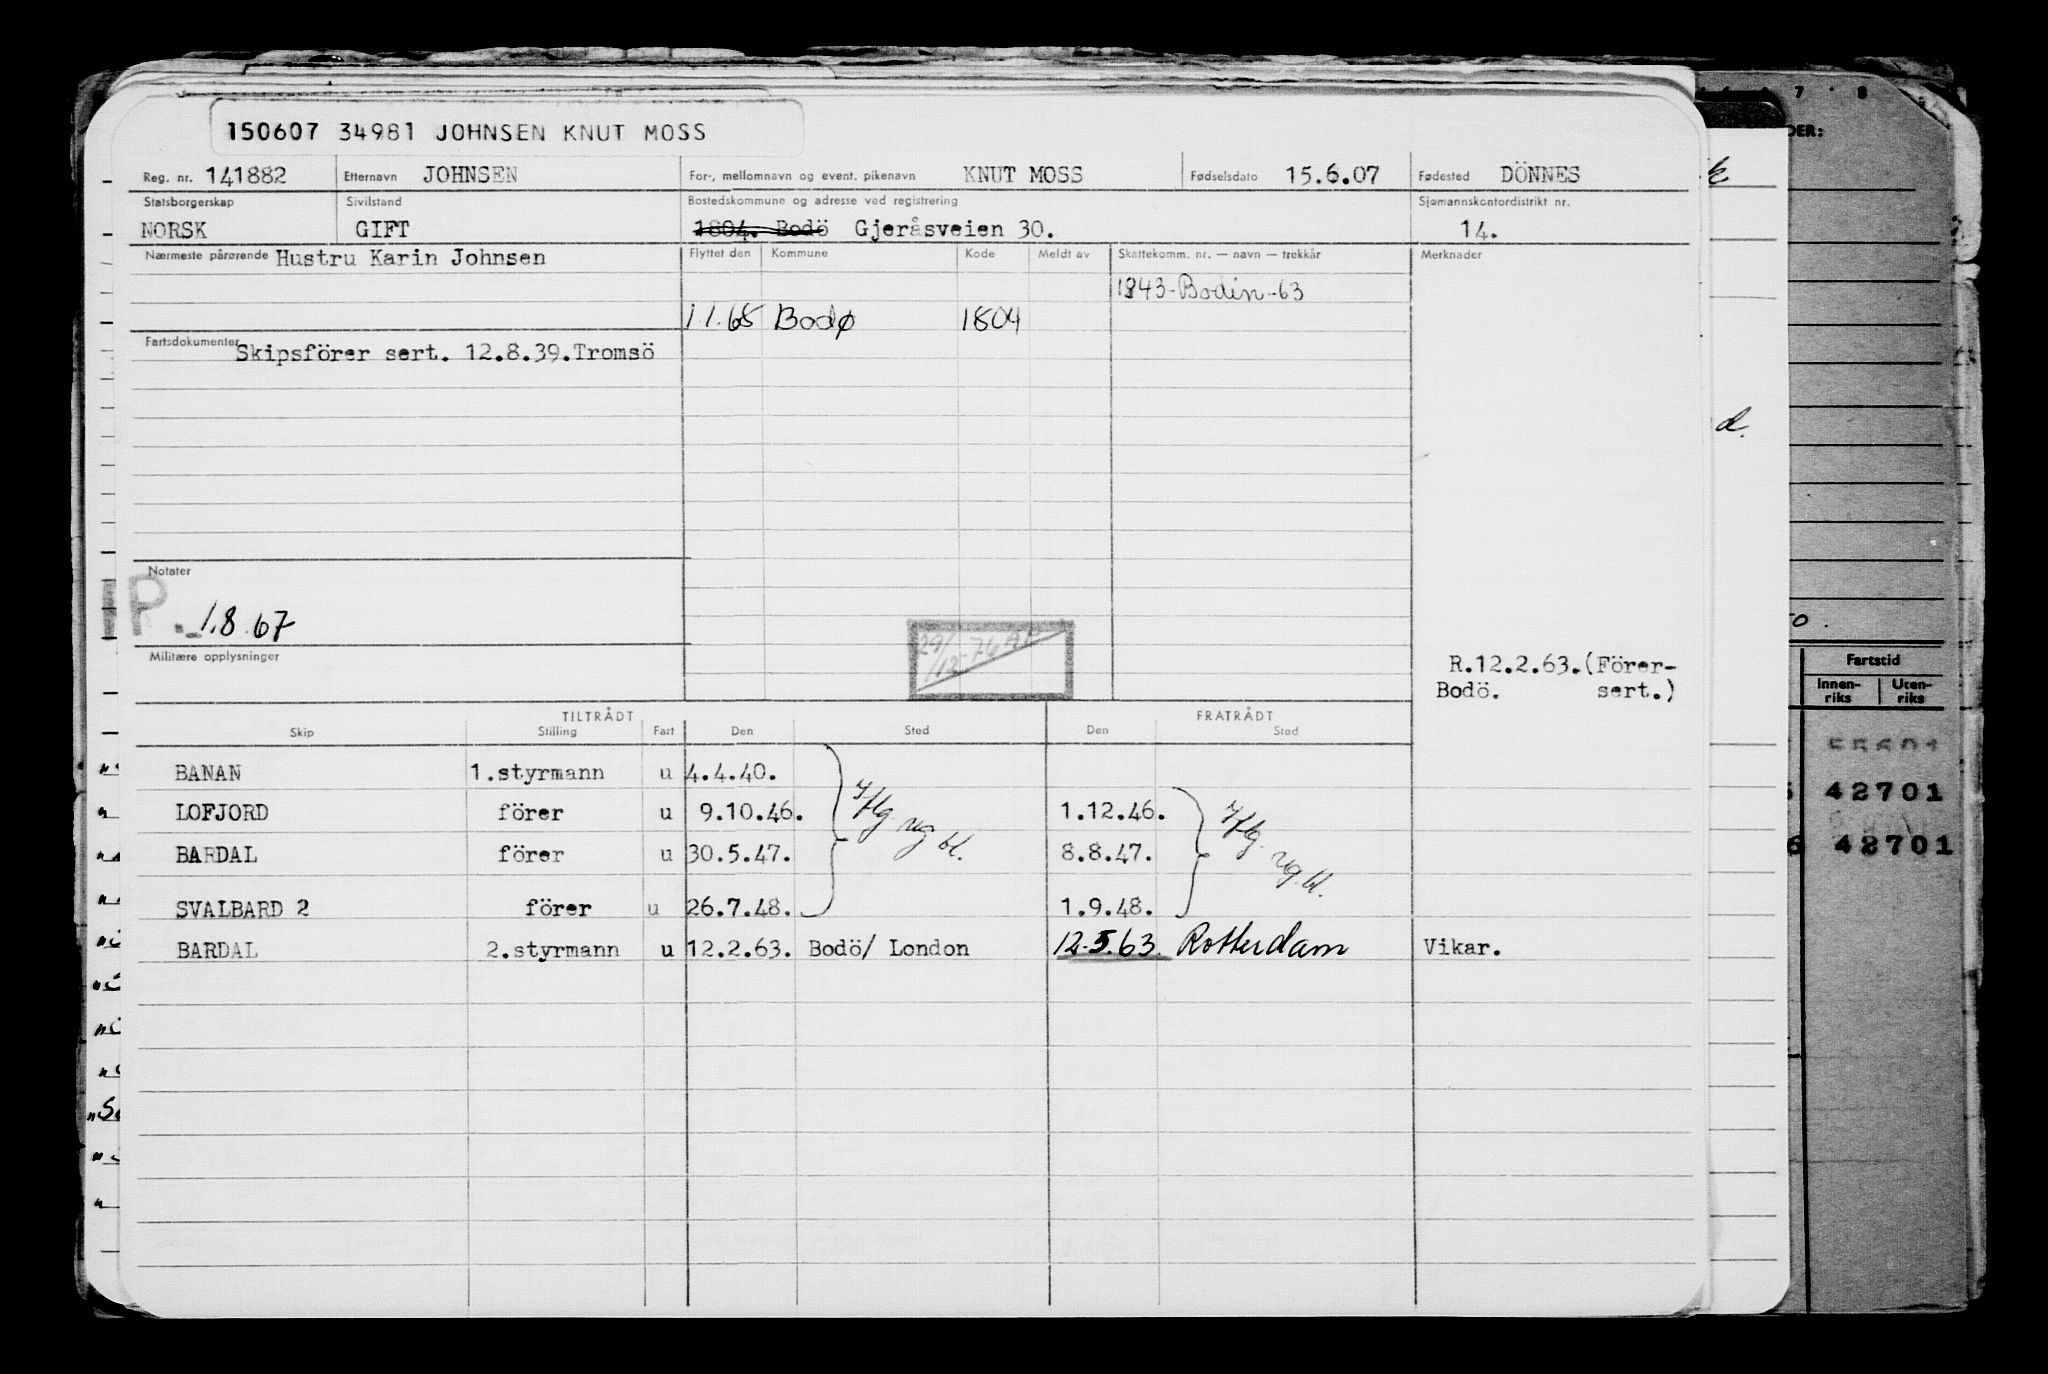 150607 34981 JOHNSEN KNUT MOSS
Reg. nr. 141882 Etternavn JOHNSEN For-, mellomnavn og event. pikenavn KNUT MOSS Fødselsdato 15.6.07 Fødested DÖNNES
Statsborgerskap Sivilstand Bostedskommune og adresse ved registrering Sjømannskontordistrikt nr.
NORSK GIFT 1804. Bodö Gjeråsveien 30. 14.
Nærmeste pårørende Hustru Karin Johnsen Flyttet den Kommune Kode Meldt av Skattekomm. nr. — navn — trekkår Merknader
1843-Bodin-63
1.1.68 Bodø 1804
Fartsdokumenter Skipsförer sert. 12.8.39.Tromsö
Notater
P. 1.8.67
29/12-76
Militære opplysninger
R.12.2.63.(Förer-
Bodö. sert.)
TILTRÅDT FRATRÅDT
Skip Stilling Fart Den Sted Den Sted
BANAN 1.styrmann u 4.4.40.
LOFJORD förer u 9.10.46. 1.12.46.
BARDAL förer u 30.5.47. 8.8.47.
SVALBARD 2 förer u 26.7.48. 1.9.48.
BARDAL 2.styrmann u 12.2.63. Bodö/ London 12.5.63. Rotterdam Vikar.
7 8
DER:
k
d.
Fartstid
Innen-
riks
Uten-
riks
55601
42701
6 42701